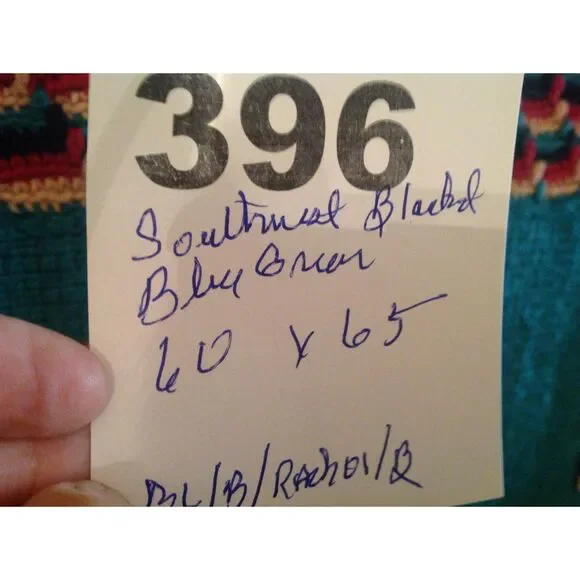 396
Southwest Blanket
Blue Green
60 x 65
BL/B/RACHEL/B